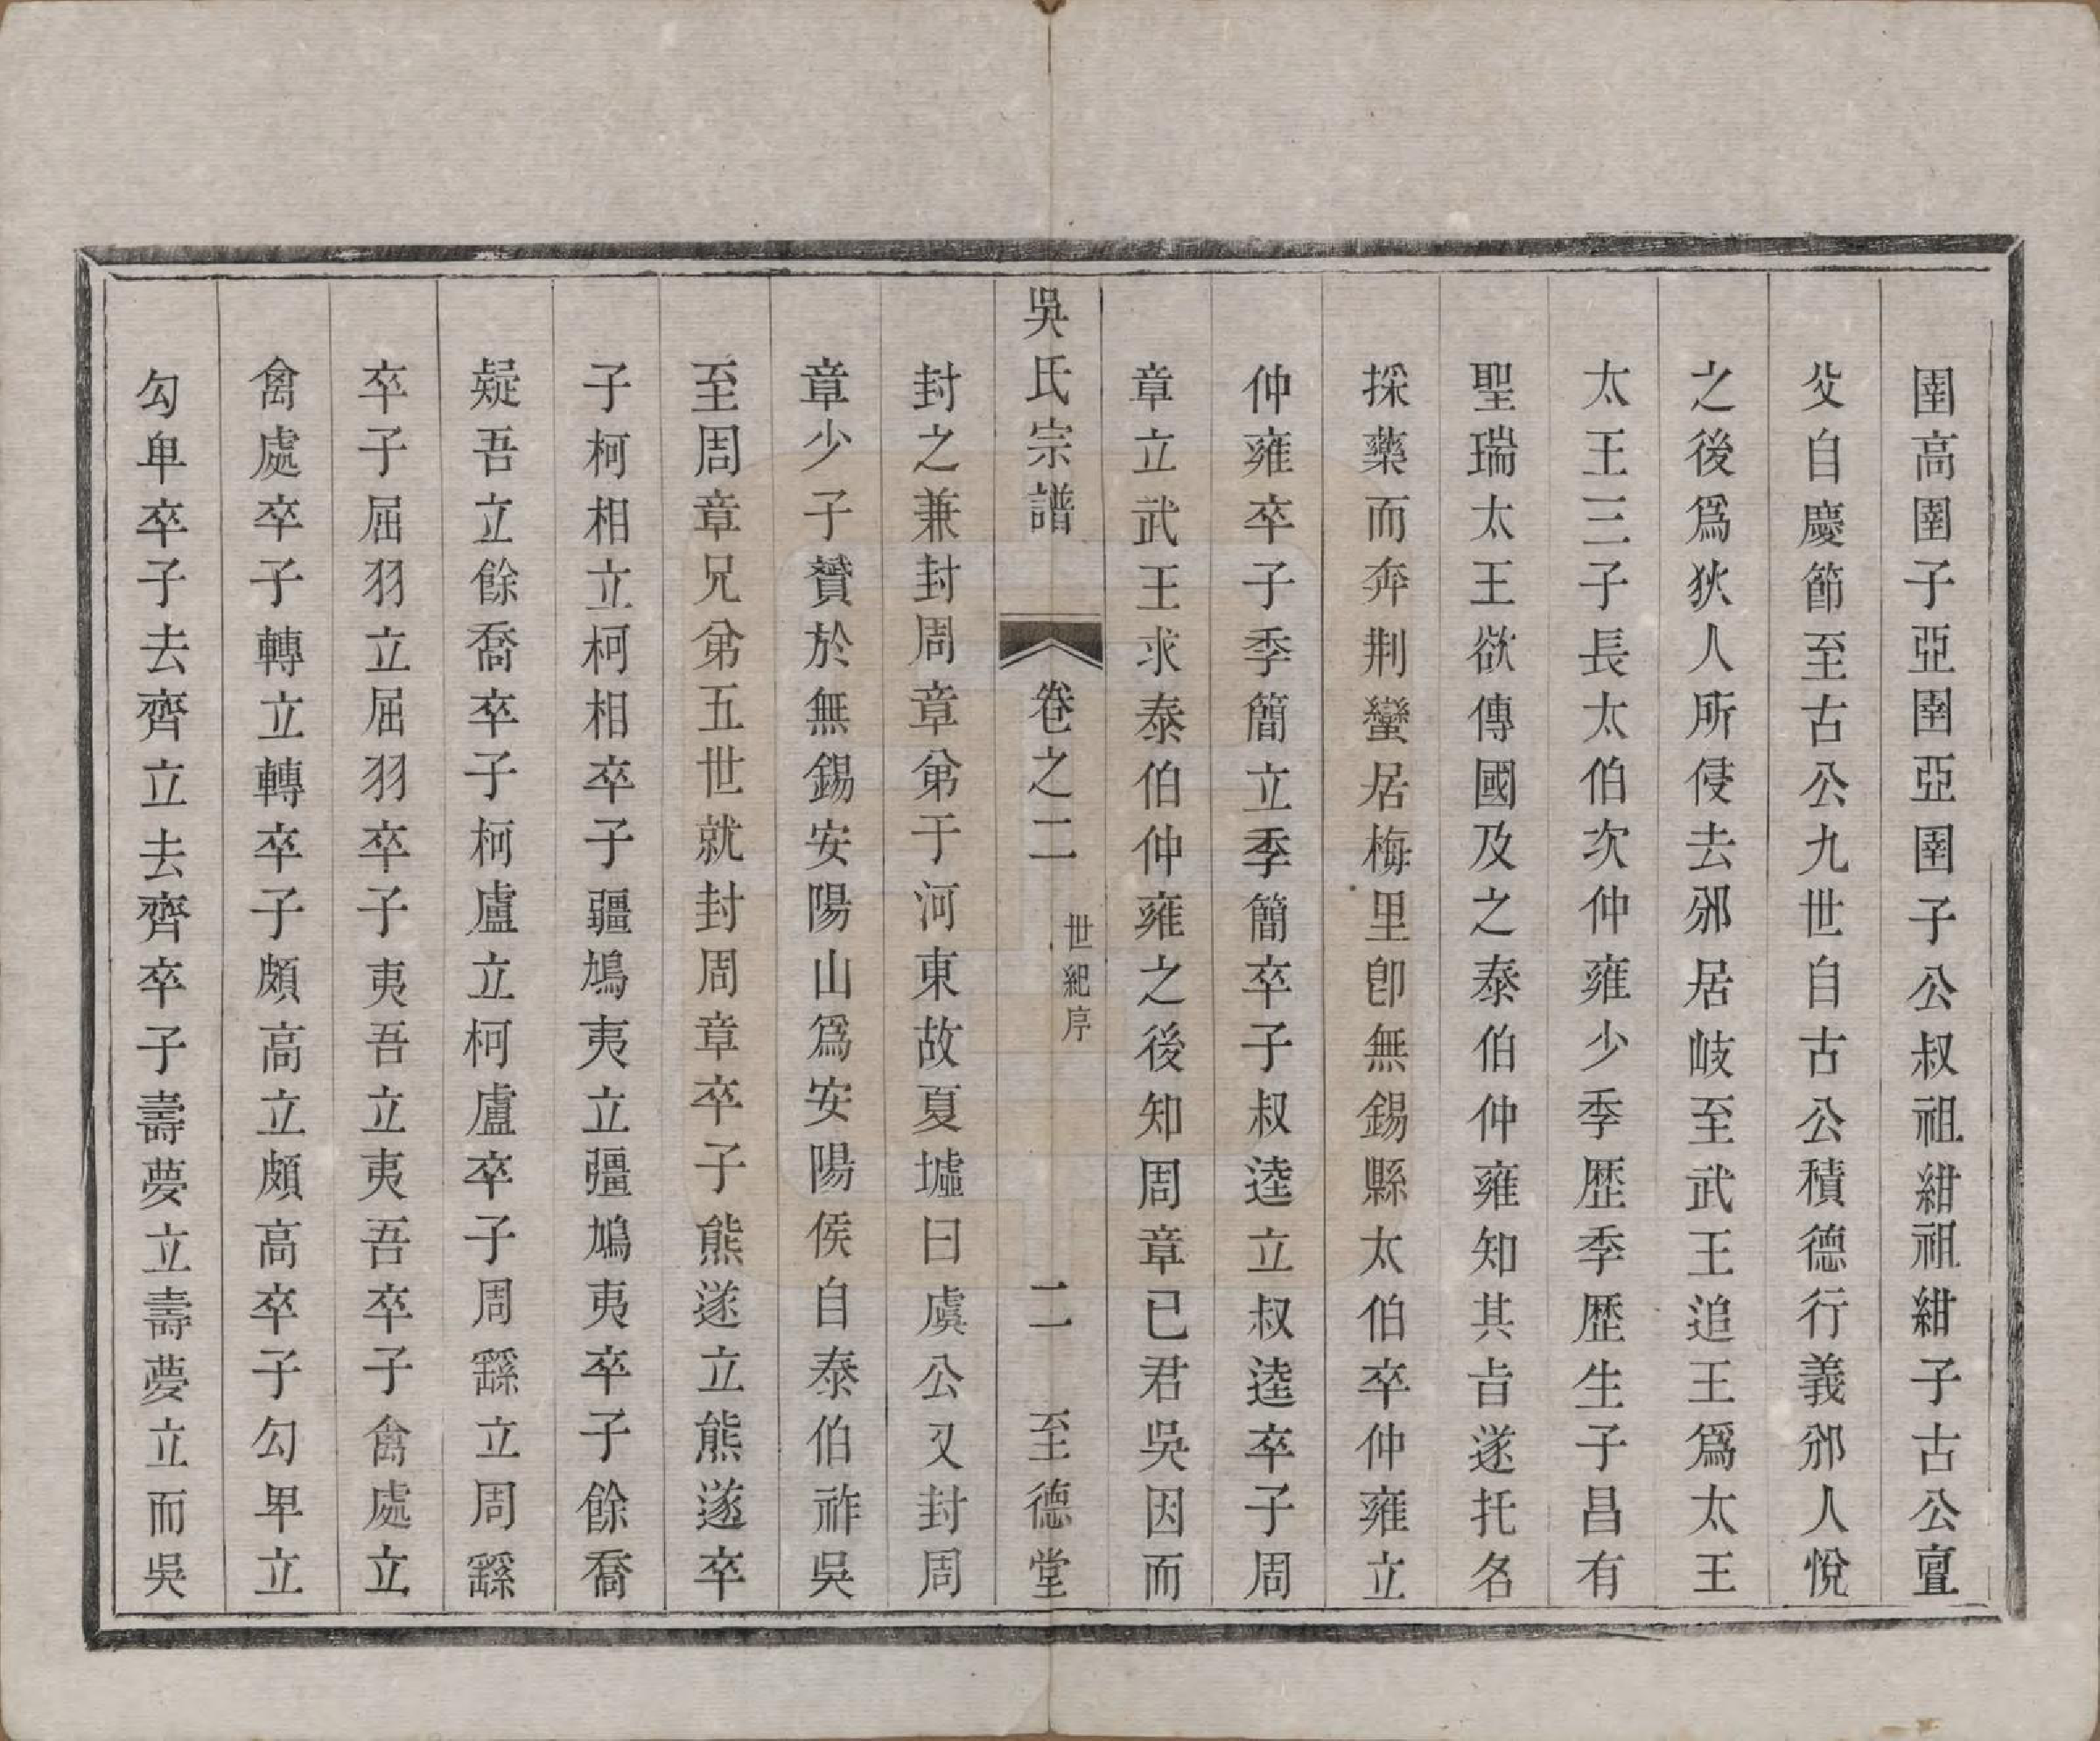 圉高圉子亞圉亞圉子公叔祖紺祖紺子古公亶
父自慶節至古公九世自古公積德行義邠人悅
之後爲狄人所侵去邠居岐至武王追王爲太王
太王三子長太伯次仲雍少季歷季歷生子昌有
聖瑞太王欲傳國及之泰伯仲雍知其㫖遂托名
採藥而奔荆蠻居梅里卽無錫縣太伯卒仲雍立
仲雍卒子季簡立季簡卒子叔逵立叔逵卒子周
章立武王求泰伯仲雍之後知周章已君吳因而
吳氏宗譜 卷之二 世紀序 二 至德堂
封之兼封周章弟于河東故夏墟曰虞公又封周
章少子贇於無錫安陽山爲安陽侯自泰伯祚吳
至周章兄弟五世就封周章卒子熊遂立熊遂卒
子柯相立柯相卒子疆鳩夷立疆鳩夷卒子餘喬
疑吾立餘喬卒子柯盧立柯盧卒子周繇立周繇
卒子屈羽立屈羽卒子夷吾立夷吾卒子禽處立
禽處卒子轉立轉卒子頗高立頗高卒子勾卑立
勾卑卒子去齊立去齊卒子壽夢立壽夢立而吳